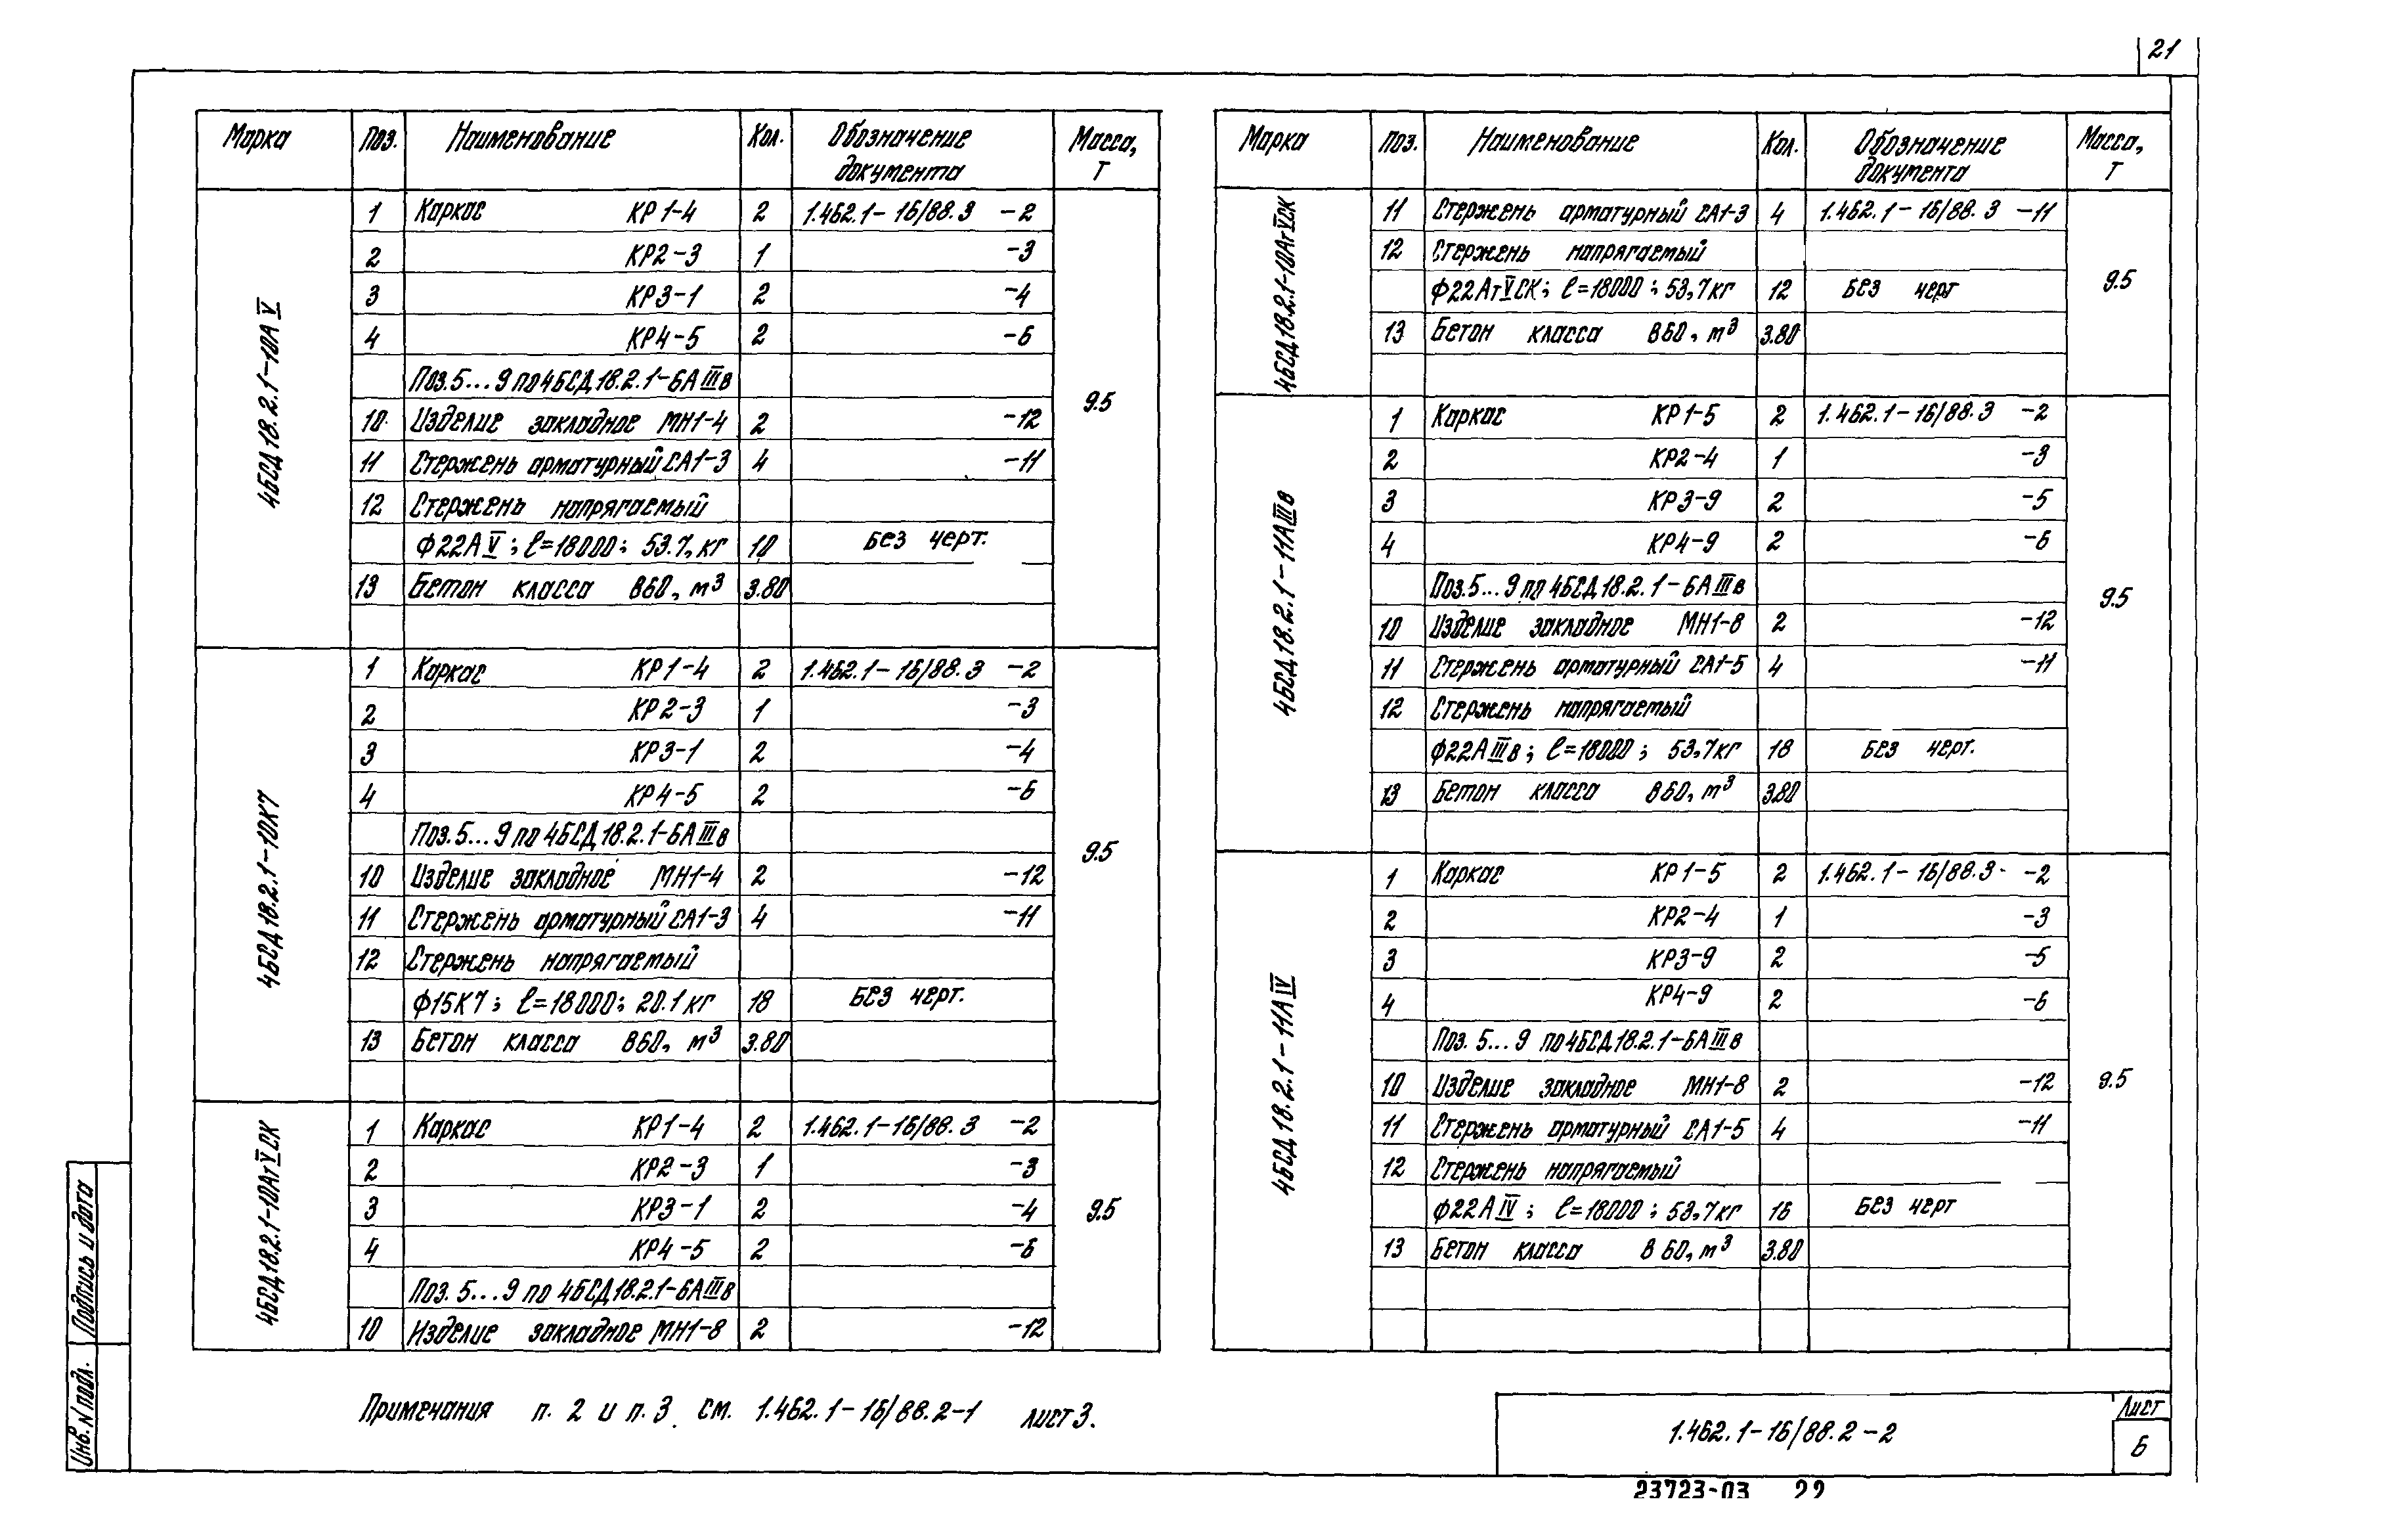 21
Марка Поз. Наименование Кол. Обозначение документа Масса, Т
4БСД18.2.1-10АV
1 Каркас КР1-4 2 1.462.1-16/88.3 -2
2 КР2-3 1 -3
3 КР3-1 2 -4
4 КР4-5 2 -6
Поз.5...9 по 4БСД18.2.1-6АIIIв
9.5
10 Изделие закладное МН1-4 2 -12
11 Стержень арматурный СА1-3 4 -11
12 Стержень напрягаемый
Ф22АV; ℓ=18000; 53.7, кг 10 Без черт.
13 Бетон класса В60, м³ 3.80
4БСД18.2.1-10К7
1 Каркас КР1-4 2 1.462.1-16/88.3 -2
2 КР2-3 1 -3
3 КР3-1 2 -4
4 КР4-5 2 -6
Поз.5...9 по 4БСД18.2.1-6АIIIв
9.5
10 Изделие закладное МН1-4 2 -12
11 Стержень арматурный СА1-3 4 -11
12 Стержень напрягаемый
Ф15К7; ℓ=18000; 20.1 кг 18 Без черт.
13 Бетон класса В60, м³ 3.80
4БСД18.2.1-10АтVСК
1 Каркас КР1-4 2 1.462.1-16/88.3 -2
2 КР2-3 1 -3
3 КР3-1 2 -4
9.5
4 КР4-5 2 -6
Поз.5...9 по 4БСД18.2.1-6АIIIв
10 Изделие закладное МН1-8 2 -12
Марка Поз. Наименование Кол. Обозначение документа Масса, Т
4БСД18.2.1-10АтVСК
11 Стержень арматурный СА1-3 4 1.462.1-16/88.3 -11
12 Стержень напрягаемый
Ф22АтVСК; ℓ=18000; 53,7кг 12 Без черт
9.5
13 Бетон класса В60, м³ 3.80
4БСД18.2.1-11АIIIв
1 Каркас КР1-5 2 1.462.1-16/88.3 -2
2 КР2-4 1 -3
3 КР3-9 2 -5
4 КР4-9 2 -6
Поз.5...9 по 4БСД18.2.1-6АIIIв
9.5
10 Изделие закладное МН1-8 2 -12
11 Стержень арматурный СА1-5 4 -11
12 Стержень напрягаемый
Ф22АIIIв; ℓ=18000; 53,7кг 18 Без черт.
13 Бетон класса В60, м³ 3.80
4БСД18.2.1-11АIV
1 Каркас КР1-5 2 1.462.1-16/88.3 -2
2 КР2-4 1 -3
3 КР3-9 2 -5
4 КР4-9 2 -6
Поз. 5...9 по 4БСД18.2.1-6АIIIв
10 Изделие закладное МН1-8 2 -12
9.5
11 Стержень арматурный СА1-5 4 -11
12 Стержень напрягаемый
Ф22АIV; ℓ=18000; 53,7кг 16 Без черт
13 Бетон класса В60, м³ 3.80
Примечания п. 2 и п. 3 см. 1.462.1-16/88.2-1 лист 3.
1.462.1-16/88.2-2
Лист
6
Подпись и дата
Инв. N подл.
23723-03 22